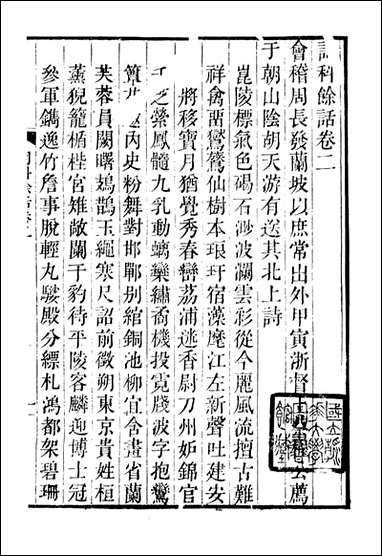 科餘話卷二
會稽周長發蘭坡以庶常出外甲寅浙督上
公薦
于朝山陰胡天游有送其北上詩
崑陵標氣色碣石渺波瀾雲彩從今麗風流擅古難
祥禽兩鸑鷟仙樹本琅玕宿藻麾江左新聲吐建安
將移寶月猶覺秀春巒荔浦逃香尉刀州妒錦官
縈鳳髓九乳動螭欒繡啇機投寛牋波字抱鸞
内史粉舞對邯鄲别綰銅池柳宜令畫省蘭
芙蓉員闕曙鳷鵲玉繩寒尺詔前徵朔東京貴姓桓
薰猊籠楯桂官雉敞闌干豹待平陵客麟迎博士冠
參軍鐫逸竹詹事脫輕丸駿殿分縹札鴻都架碧珊